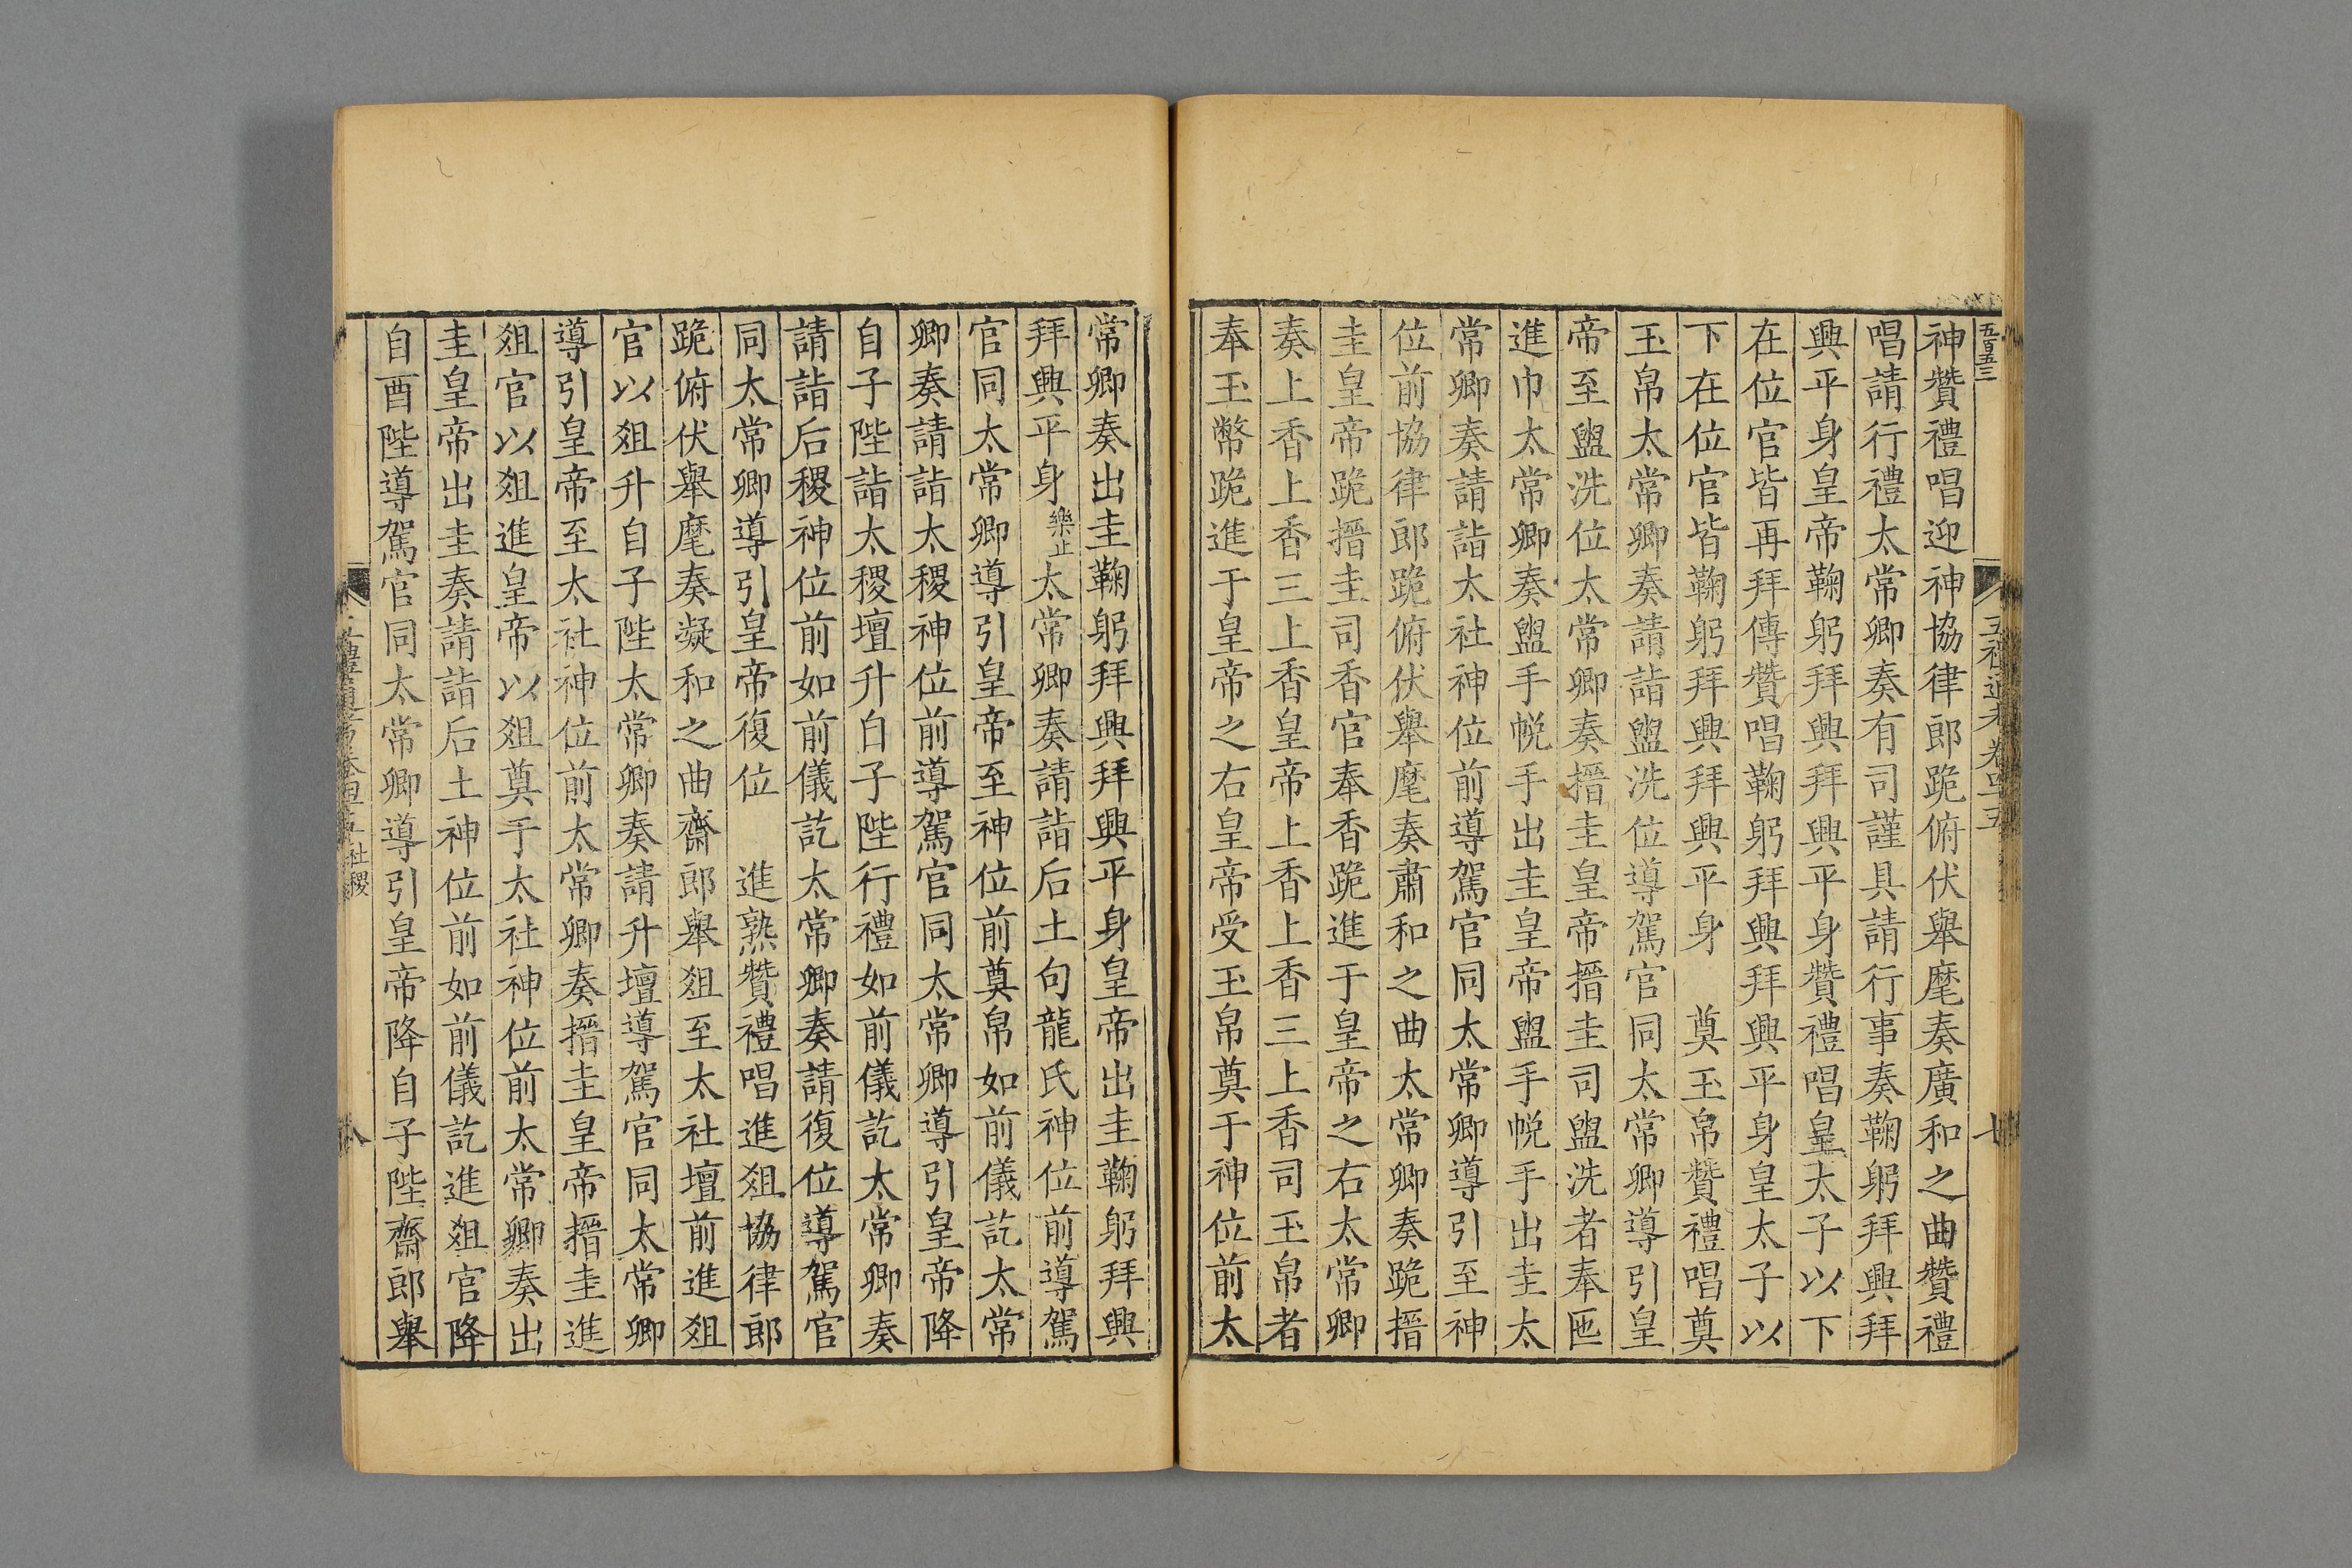 神贊禮唱迎神協律郎跪俯伏舉麾奏廣和之曲贊禮
唱請行禮太常卿奏有司謹具請行事奏鞠躬拜興拜
興平身皇帝鞠躬拜興拜興平身贊禮唱皇太子以下
在位官皆再拜傳贊唱鞠躬拜興拜興平身皇太子以
下在位官皆鞠躬拜興拜興平身　奠玉帛贊禮唱奠
玉帛太常卿奏請詣盥洗位導駕官同太常卿導引皇
帝至盥洗位太常卿奏搢圭皇帝搢圭司盥洗者奉匜
進巾太常卿奏盥手帨手出圭皇帝盥手帨手出圭太
常卿奏請詣太社神位前導駕官同太常卿導引至神
位前協律郎跪俯伏舉麾奏肅和之曲太常卿奏跪搢
圭皇帝跪搢圭司香官奉香跪進于皇帝之右太常卿
奏上香上香三上香皇帝上香上香三上香司玉帛者
奉玉幣跪進于皇帝之右皇帝受玉帛奠于神位前太
常卿奏出圭鞠躬拜興拜興平身皇帝出圭鞠躬拜興
拜興平身樂止太常卿奏請詣后土句龍氏神位前導駕
官同太常卿導引皇帝至神位前奠帛如前儀訖太常
卿奏請詣太稷神位前導駕官同太常卿導引皇帝降
自子陛詣太稷壇升白子陛行禮如前儀訖太常卿奏
請詣后稷神位前如前儀訖太常卿奏請復位導駕官
同太常卿導引皇帝復位　進熟贊禮唱進俎協律郎
跪俯伏舉麾奏凝和之曲齋郎舉俎至太社壇前進俎
官以俎升自子陛太常卿奏請升壇導駕官同太常卿
導引皇帝至太社神位前太常卿奏搢圭皇帝搢圭進
俎官以俎進皇帝以俎奠于太社神位前太常卿奏出
圭皇帝出圭奏請詣后土神位前如前儀訖進俎官降
自酉陛導駕官同太常卿導引皇帝降自子陛齋郎舉
五禮通考卷四十五 社稷